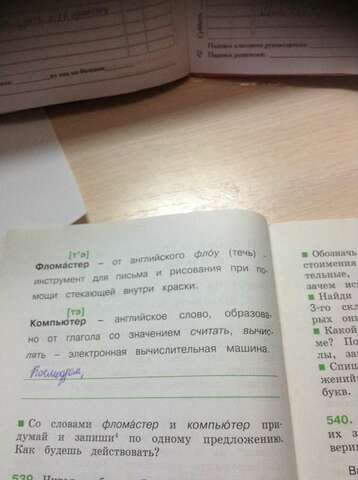 Подпись классного руководителя
Подпись родителей
[т'э]
Флома́стер – от английского фло́у (течь) .
инструмент для письма и рисования при по-
мощи стекающей внутри краски.
[тэ]
Компью́тер – английское слово, образова-
но от глагола со значением считать, вычис-
лять – электронная вычислительная машина.
Космодром,
■ Со словами флома́стер и компью́тер при-
думай и запиши⁴ по одному предложению.
Как будешь действовать?
539.
■ Обознач
стоимения
тельные,
зачем исп
■ Найди
3-го скл
рых окн
■ Какой
ме? По
лы, зап
■ Спиш
жений
букв.
540.
их з
вери